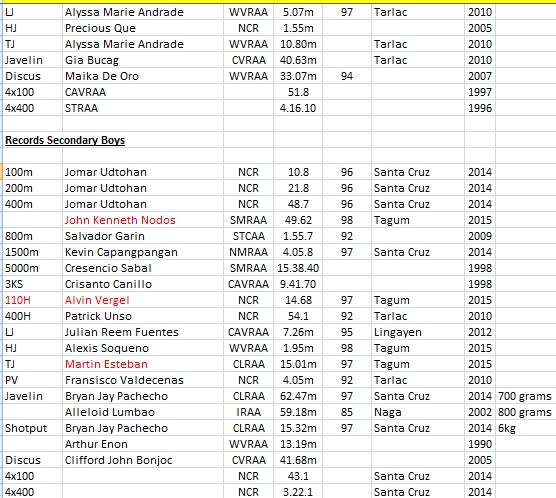 LJ Alyssa Marie Andrade WVRAA 5.07m 97 Tarlac 2010
HJ Precious Que NCR 1.55m 2005
TJ Alyssa Marie Andrade WVRAA 10.80m Tarlac 2010
Javelin Gia Bucag CVRAA 40.63m Tarlac 2010
Discus Maika De Oro WVRAA 33.07m 94 2007
4x100 CAVRAA 51.8 1997
4x400 STRAA 4.16.10 1996
Records Secondary Boys
100m Jomar Udtohan NCR 10.8 96 Santa Cruz 2014
200m Jomar Udtohan NCR 21.8 96 Santa Cruz 2014
400m Jomar Udtohan NCR 48.7 96 Santa Cruz 2014
John Kenneth Nodos SMRAA 49.62 98 Tagum 2015
800m Salvador Garin STCAA 1.55.7 92 2009
1500m Kevin Capangpangan NMRAA 4.05.8 97 Santa Cruz 2014
5000m Cresencio Sabal SMRAA 15.38.40 1998
3KS Crisanto Canillo CAVRAA 9.41.70 1998
110H Alvin Vergel NCR 14.68 97 Tagum 2015
400H Patrick Unso NCR 54.1 92 Tarlac 2010
LJ Julian Reem Fuentes CAVRAA 7.26m 95 Lingayen 2012
HJ Alexis Soqueno WVRAA 1.95m 98 Tagum 2015
TJ Martin Esteban CLRAA 15.01m 97 Tagum 2015
PV Fransisco Valdecenas NCR 4.05m 92 Tarlac 2010
Javelin Bryan Jay Pachecho CLRAA 62.47m 97 Santa Cruz 2014 700 grams
Alleloid Lumbao IRAA 59.18m 85 Naga 2002 800 grams
Shotput Bryan Jay Pachecho CLRAA 15.32m 97 Santa Cruz 2014 6kg
Arthur Enon WVRAA 13.19m 1990
Discus Clifford John Bonjoc CVRAA 41.68m 2005
4x100 NCR 43.1 Santa Cruz 2014
4x400 NCR 3.22.1 Santa Cruz 2014